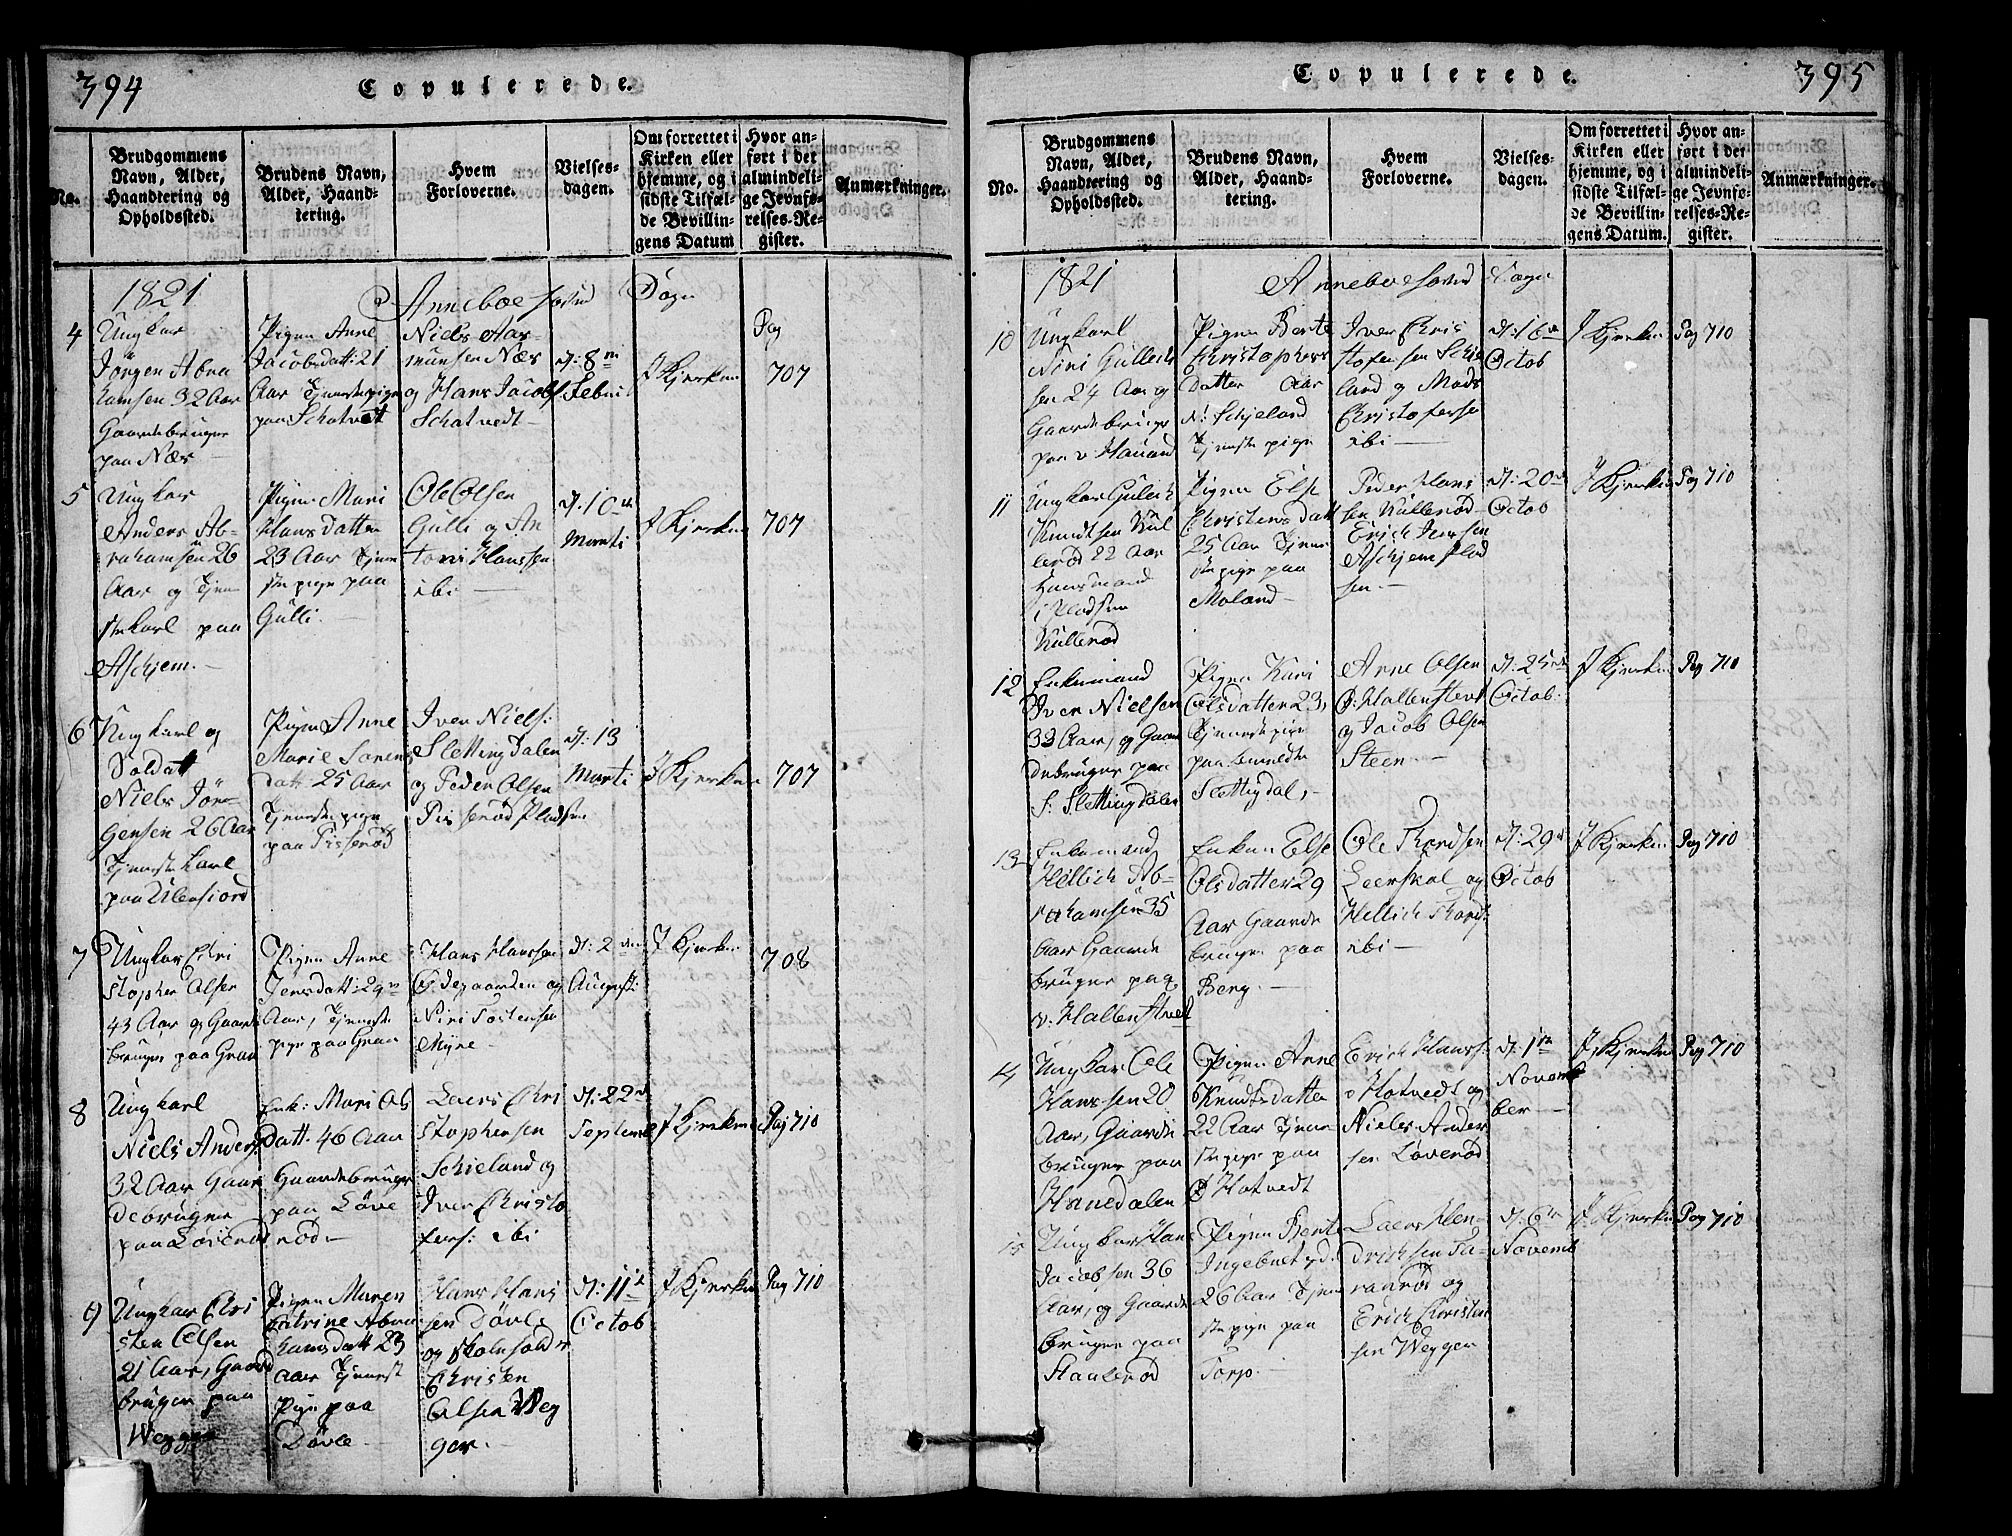 394
Copulerede.
No.
Brudgommens
Navn, Alder,
Haandtering og
Opholdssted.
Brudens Navn,
Alder, Haand-
tering.
Hvem
Forloverne.
Vielses-
dagen.
Om forrettet i
Kirken eller
hjemme, og i
sidste Tilfæl-
de Bevillin-
gens Datum
Hvor an-
ført i det
almindeli-
ge Jevnfø-
relses-Re-
gister.
Anmærkninger.
1821
Anneboe Sogn
4
Ungkar
Jörgen Abra
hamsen 32 Aar
Gaardebruger
paa Næs
Pigen Anne
Jacobsdatt: 21
Aar Tjenestepige
paa Schatvet
Niels Aas
munsen Næs
og Hans Jacobs
Schatvedt
d: 8
Febru
J Kjerken
Pag
707
5
Ungkar
Anders Ab-
rahamsen 26
Aar og Tjene
stekarl paa
Aschjem.
Pigen Mari
Hans Datter
23 Aar Tjene
stepige paa
Gulli.
Ole Olsen
Gulli og An
toni Hanssen
ibi
d: 10
Marti
J Kjerken
707
6
Ungkarl og
Soldat
Niels Jör-
gensen 26 Aar
Tjenestekarl
paa Ulensiord
Pigen Anne
Marie Sorens
Datt: 25 Aar
Tjenestepige
paa Pisserød
Iver Niels:
Slettingdalen
og Peder Olsen
Pisserød Pladsen
d: 13
Marti
J Kjerken
707
7
Ungkar Chri
stopher Olsen
43 Aar og Gaarde
bruger paa Gran
Pigen Anne
Jensdatt: 29
Aar, Tjeneste
pige paa Gran
Hans Hanssen
Ødegaarden og
Niri Tostensen
Myre
d: 2
August:
J Kjerken
708
8
Ungkarl
Niels Anders:
32 Aar Gaar
debruger
paa Löverød
Enk: Mari Ols
datt. 46 Aar
Gaardebruger
paa Löve
rød
Laers Chri
stophersen
Schieland og
Iver Christo
fers: ibi
d: 22
Septemb
J Kjerken
Pag 710
9
Ungkar Chri
sten Olsen
21 Aar, Gaard
bruger paa
Wegger
Pigen Maren
Catrine Abra
hamsdatt 23
Aar Tjenest
pige paa
Dövle
Hans Hans
sen Dövle
og Skoleholder
Christen
Olsen Weg
ger.
d: 11
Octob
J Kjerken
Pag 710
395
Copulerede.
No.
Brudgommens
Navn, Alder,
Haandtering og
Opholdssted.
Brudens Navn,
Alder, Haand-
tering.
Hvem
Forloverne.
Vielses-
dagen.
Om forrettet i
Kirken eller
hjemme, og i
sidste Tilfæl-
de Bevillin-
gens Datum.
Hvor an-
ført i det
almindeli-
ge Jevnfø-
relses-Re-
gister.
Anmærkninger.
1821
Anneboe Sogn
10
Ungkarl
Niri Gullich
sen 24 Aar og
Gaardebruger
paa v: Hauand
Pigen Berte
Christophers
datter Aar
Schjeland
Tjenestepige
Iver Chris
stofersen Schie
land og Mads
Christofersen
ibi
d: 16
Octob
J Kjerken
Pag 710
11
Ungkar Gulich
Knudtsen Kul
lerød 22 Aar
Huusmand
i Pladsen
Kullerød
Pigen Else
Christensdatt
25 Aar Tjene
stepige paa
Moland
Peder Hans
sen Kullerød
Erich Iversen
Aschjem Plad
sen.
d: 20
Octob
J Kjerken
Pag 710
12
Enkemand
Iver Nielsen
33 Aar, og Gaar
debruger paa
S: Slettingdalen
Pigen Kari
Olsdatter 23,
Tjenestepige
paa
Slettigdal,
Arne Olsen
Ø: Hallenstvet
og Jacob Olsen
Steen
d: 25
Octob:
J Kjerken
Pag 710
13
Enkemand
Hellich Ab-
rahamsen 35
Aar Gaarde
bruger paa
v: Hallenstvet
Enken Else
Olsdatter 29
Aar Gaarde
bruger paa
Berg.
Ole Thordsen
Leerskal og
Hellich Thords:
ibi
d: 29
Octob
J Kjerken
Pag 710
14
Ungkar Ole
Hanssen 20
Aar, Gaarde
bruger paa
Hanedalen
Pigen Anne
Knudsdatter
22 Aar Tjene
stepige paa
Ø Hotvedt
Erich Hanss:
v Hotvedt og
Niels Ander
sen Löverød
d: 1
Novem
ber
J Kjerken
Pag 710
15
Ungkar Hans
Jacobsen 36
Aar, og Gaarde
bruger paa
Staulerød
Pigen Berte
Ingebret gd.
26 Aar Tjene
stepige paa
Torp
Laers Hen-
drichsen Ta-
rarød og
Erich Christen
sen Wegger
d: 6
Novemb
J Kjerken
Pag 710